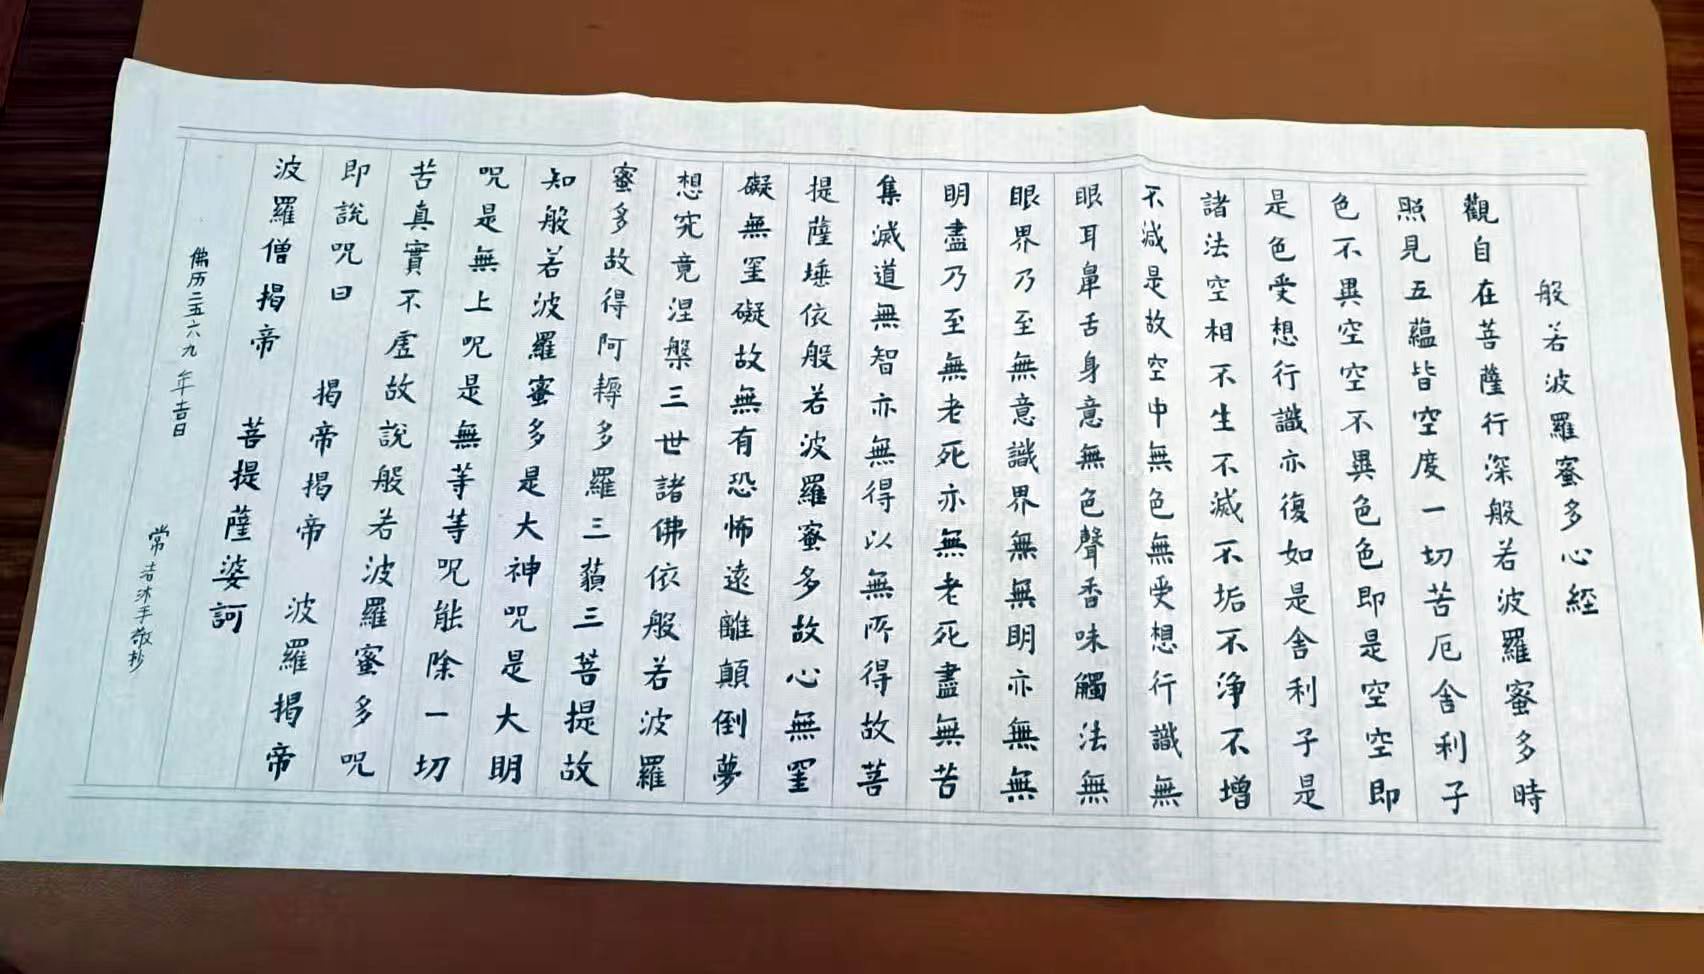 般若波羅蜜多心經
觀自在菩薩行深般若波羅蜜多時
照見五蘊皆空度一切苦厄舍利子
色不異空空不異色色即是空空即
是色受想行識亦復如是舍利子是
諸法空相不生不滅不垢不淨不增
不減是故空中無色無受想行識無
眼耳鼻舌身意無色聲香味觸法無
眼界乃至無意識界無無明亦無無
明盡乃至無老死亦無老死盡無苦
集滅道無智亦無得以無所得故菩
提薩埵依般若波羅蜜多故心無罣
礙無罣礙故無有恐怖遠離顛倒夢
想究竟涅槃三世諸佛依般若波羅
蜜多故得阿耨多羅三藐三菩提故
知般若波羅蜜多是大神咒是大明
咒是無上咒是無等等咒能除一切
苦真實不虛故說般若波羅蜜多咒
即說咒曰 揭帝揭帝 波羅揭帝
波羅僧揭帝 菩提薩婆訶
佛历二五六九年吉日 常洁沐手敬抄